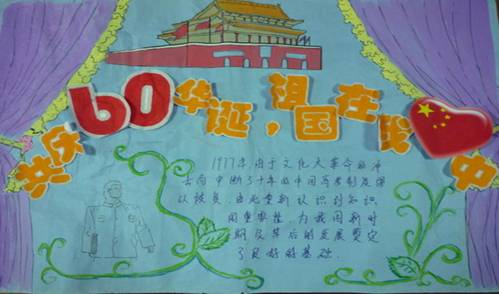 共庆60华诞，祖国在我中
1977年，由于文化大革命的冲
击而中断了十年的中国高考制度得
以恢复，由此重新认识到知识
的重要性，为我国新时
期及其后的发展奠定
了良好的基础．